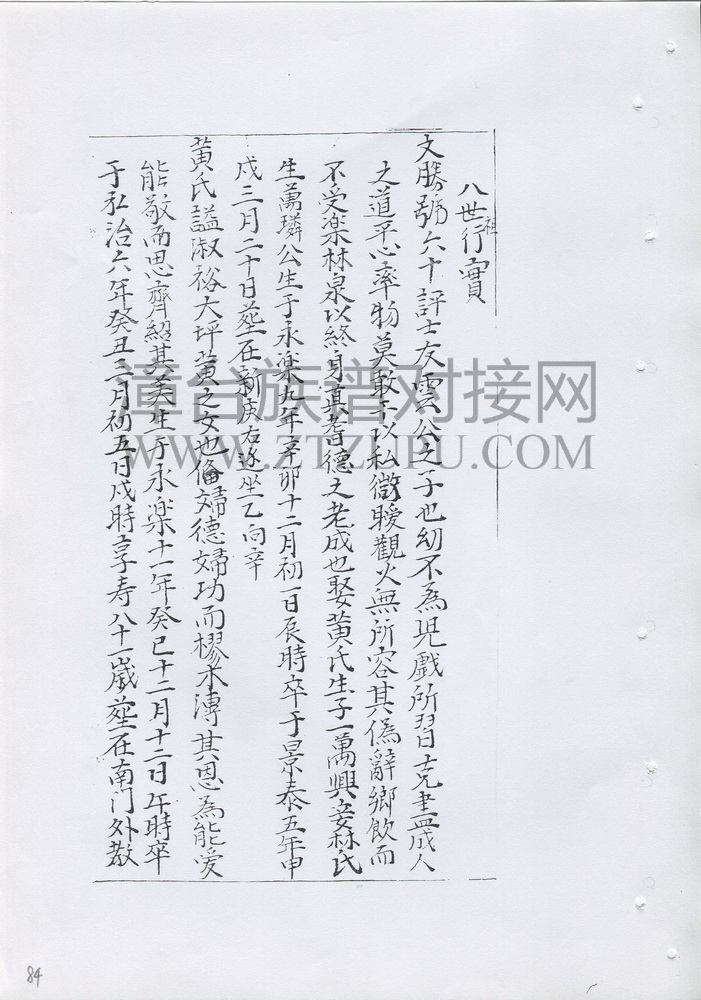 八世祖行實
文勝號六十評士友雲公之子也幼不為児戲所習克盡成人
之道平心率物莫敢于以私微曖觀火無所容其偽辭鄉飲而
不受楽林泉以終身真耆德之老成也娶黄氏生子一萬興妾林氏
生萬璘公生于永楽九年辛卯十二月初一日辰時卒于景泰五年甲
戍三月二十日塟在新庚右邊坐乙向辛
黄氏謚淑裕大坪黄之女也脩婦德婦功而樛木溥其恩為能愛
能敬而思齊紹其美生于永楽十一年癸巳十二月十二日午時卒
于弘治六年癸丑三月初五日戍時享寿八十一嵗塟在南门外教
漳台族谱对接网
WWW.ZTZUPU.COM
84